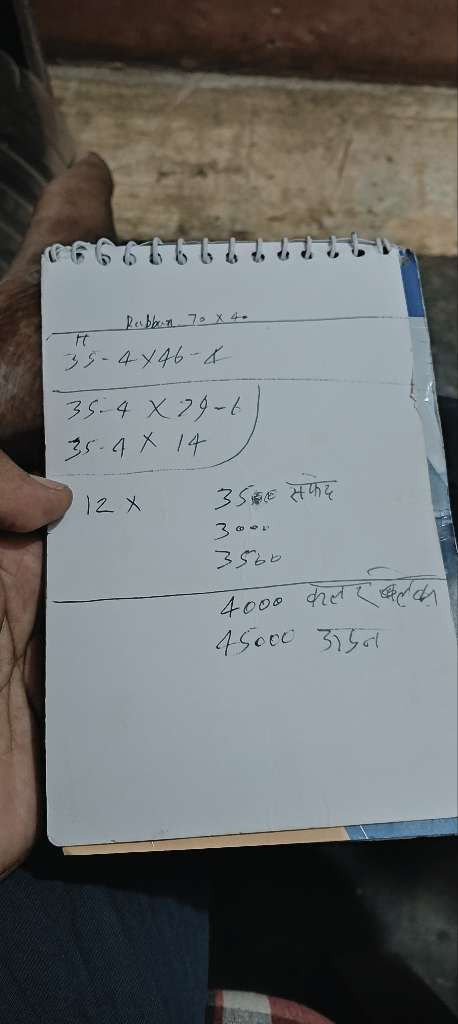 70 X 40
H
35-4 X 46-4
35-4 X 29-6
35-4 X 14
12 X 35 सफेद
3000
3500
4000 कलर
45000